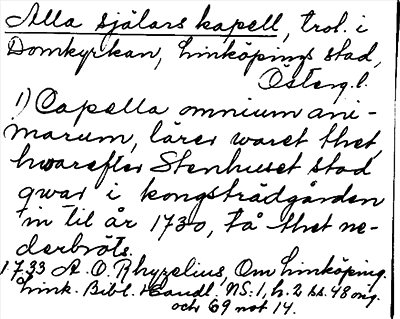 Alla själars kapell, trol. i
Domkyrkan, Linköpings stad,
Österg. l.
1) Capella omnium ani-
marum, lärer waret thet,
hwarefter Stenhuset stod
qwar i kongsträdgården
in til år 1730, tå thet ne-
derbröts.
1733 A. O. Rhyzelius, Om Linköping.
Link. Bibl. Handl. NS. 1, h. 2 ss. 48 mg.
och 69 not 14.